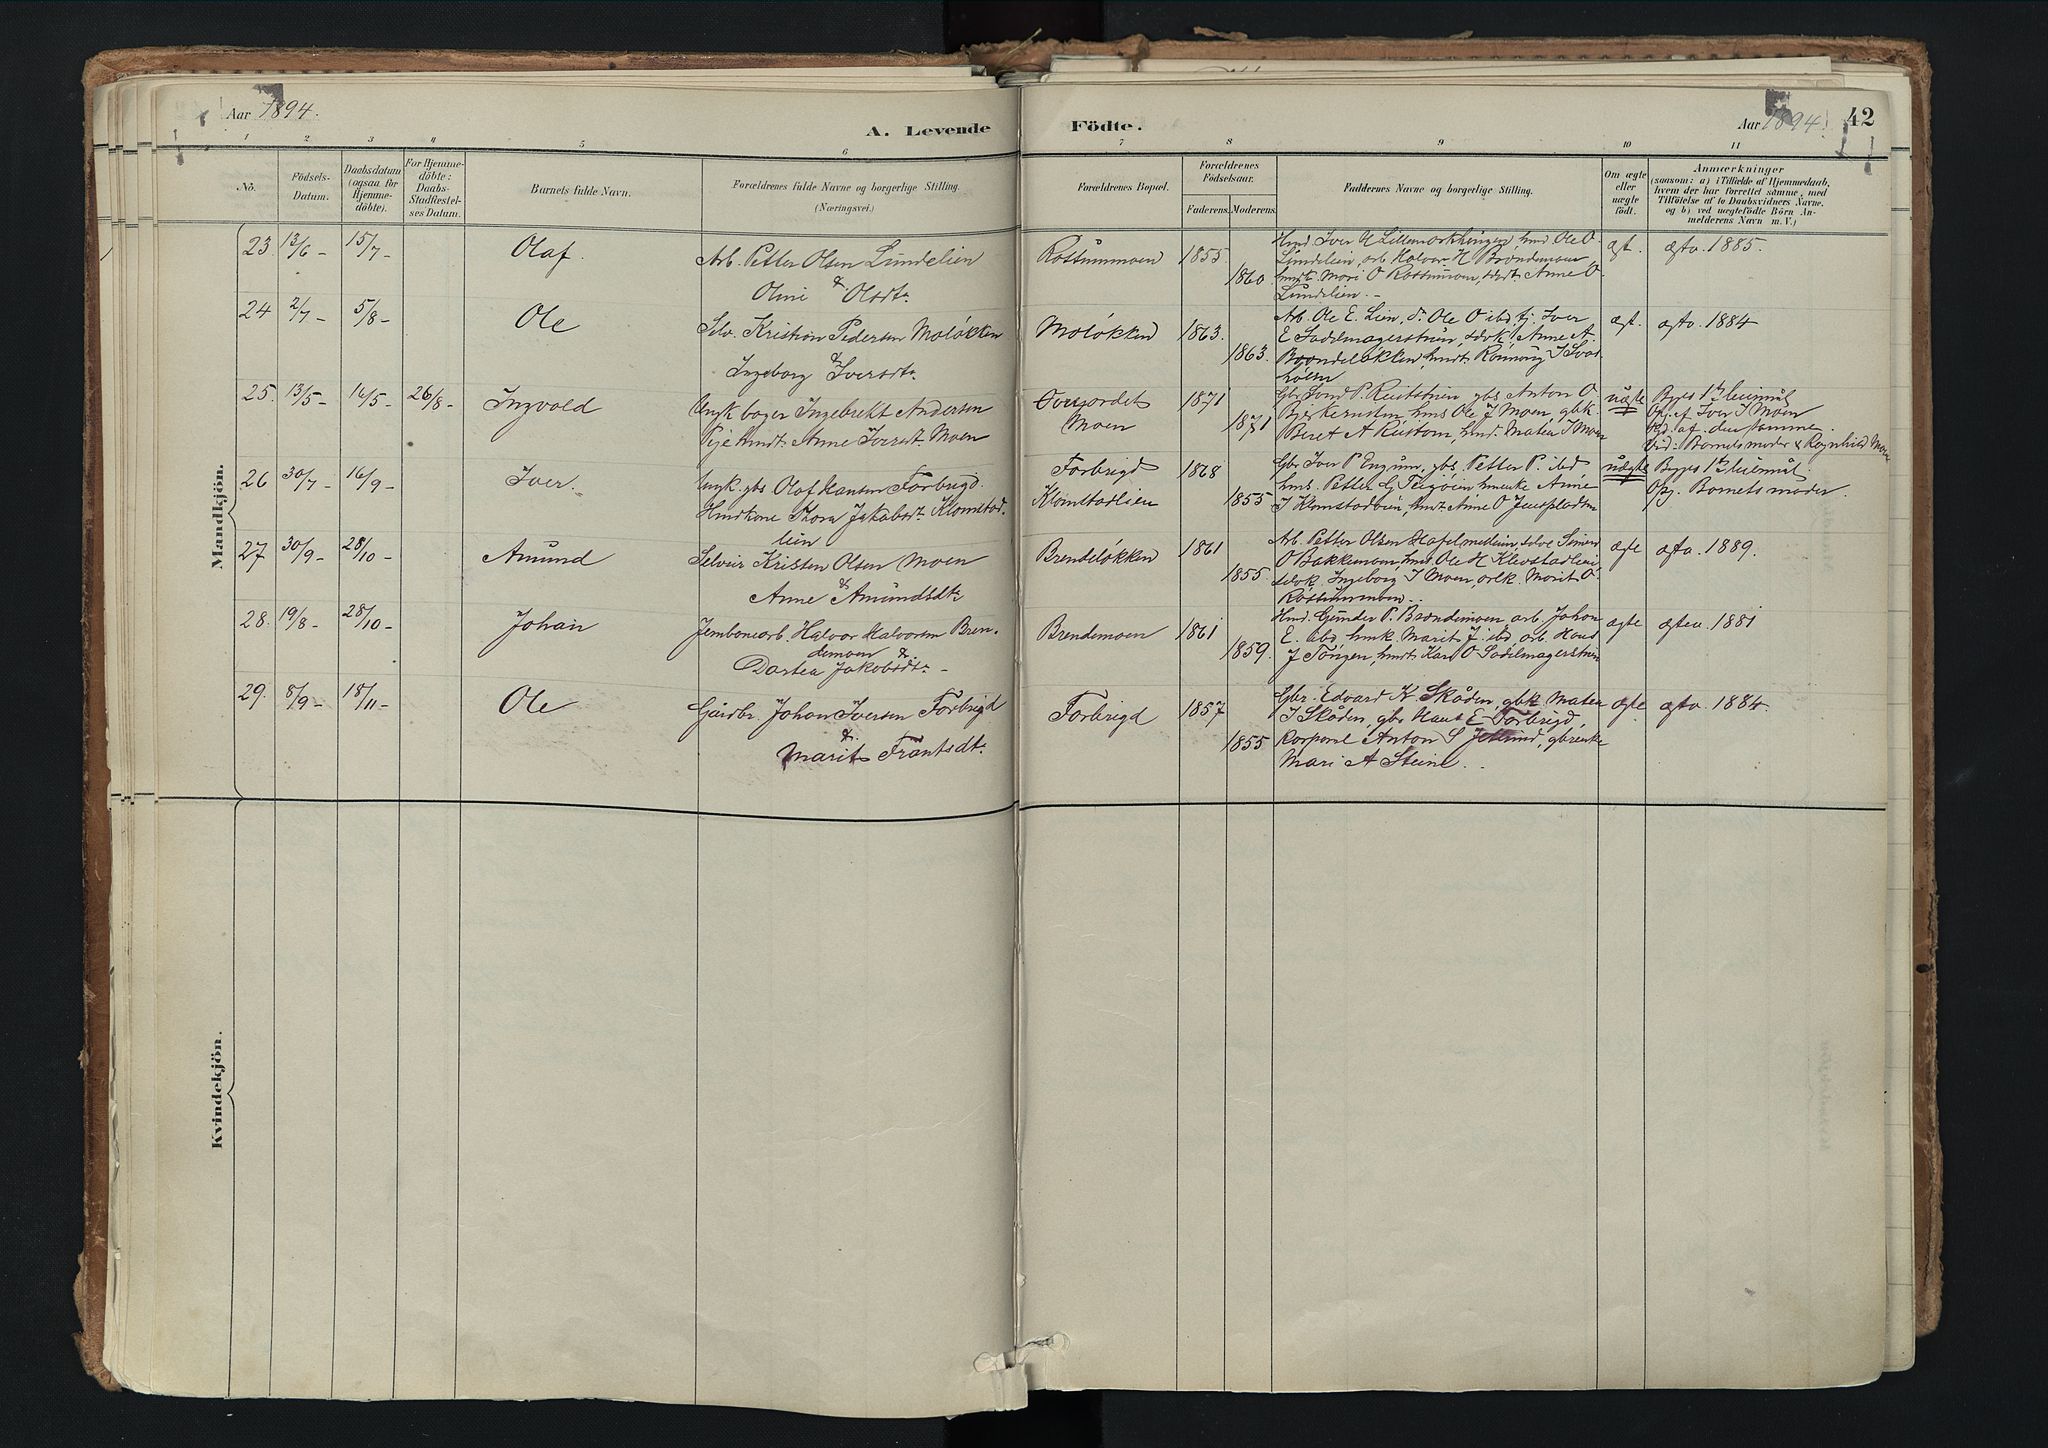 Aar 1894.
A. Levende
Födte.
Aar 1894.
42
1 2 3 4 5 6 7 8 9 10 11
No.
Födsels-
Datum.
Daabsdatum
(ogsaa for
Hjemme-
döbte).
For Hjemme-
döbte:
Daabs-
Stadfæstel-
ses Datum.
Barnets fulde Navn.
Forældrenes fulde Navne og borgerlige Stilling.
(Næringsvei.)
Forældrenes Bopæl.
Forældrenes
Födselsaar.
Faderens.
Moderens.
Faddernes Navne og borgerlige Stilling.
Om ægte
eller
uægte
födt.
Anmærkninger
(saasom: a) i Tilfælde af Hjemmedaab,
hvem der har forrettet samme, med
Tilföielse af to Daabsvidners Navne,
og b) ved uægtefödte Börn An-
melderens Navn m. V.)
Mandkjön.
23. 13/6 - 15/7 - Olaf.
Arb. Petter Olsen Lundelien
&
Olsdtr
Rostummoen
1855
1860.
Hmd. Iver
hmd Ole O.
Lundelien, arb Halvor H Brendemoen
hmdk. Mari O Rostummoen,
Anne O
Lundelien. -
ægt.
ægtv. 1885.
24 2/7 - 5/8 - Ole
Selv. Kristian Pedersen Moløkken
Ingeborg Iversdtr
Moløkken
1863.
1863.
Arb. Ole E. Lien, d. Ole O ibd tj. Iver
E Sadelmagerstuen,
Anne A.
Brendeløkken, hmdt Rønnaug I
ægt.
ægtv. 1884
25. 13/5 - 14/5 - 26/8 - Ingvald
Ungk bager Ingebrekt Andersen
Pige hmdt Anne Iversdt Moen
Moen
1871
1871
gbs Anton O
hms Ole J Moen gbk.
Beret A Rustom, hmd. Matea I Moen
uægte
Begges 1ste leiermål
Opg. af Iver I Moen
af den samme
Vid: Barnets moder & Ragnhild Moen
26 30/7 - 16/9 - Iver.
Ungk. gbs Olaf Hansen Forbrigd.
Hmdkone Thora Jakobsdt Klomstad-
lien
Forbrigd
Klomstadlien
1868
1855
Gbr Iver P Engum, gbs Petter P. ibd
hms. Petter G
Anne
I Klomstadlien, hmdt Anne O
uægte
Begges 1ste leiermål.
Opg. Barnets moder.
27 30/9 - 28/10 - Amund
Selveir Kristen Olsen Moen
&
Anne Amundsdtr
Brendeløkken
1861
1855.
Arb Petter Olsen
selve Simen
O Bakkemoen, hmd Ole H Klevstadlien,
Ingeborg I Moen, arbk. Marit O.
Rostummoen.
ægte
ægtv. 1889.
28. 19/8 - 28/10 - Johan
Jernbanearb. Halvor Halvorsen Bren-
demoen &
Dortea Jakobsdtr -
Brendemoen
1861
1859.
Hmd. Gunder P. Brendemoen arb. Johan
E. ibd hmk. Marit J. ibd arb. Hans
J Tongen, hmdt Kari O Sadelmagerstuen
ægte
ægtev. 1881
29. 8/9 - 18/11 - Ole
Gårdbr. Johan Iversen Forbrigd
&
Marit Frantsdtr
Forbrigd
1857
1855
Gbr. Edvard K Skåden, gbk Matea
I Skåden, gbs Hans E Forbrigd,
Korporal Anton S
gbrenke
Mari A Steine.
ægte.
ægtv. 1884.
Kvindekjön.